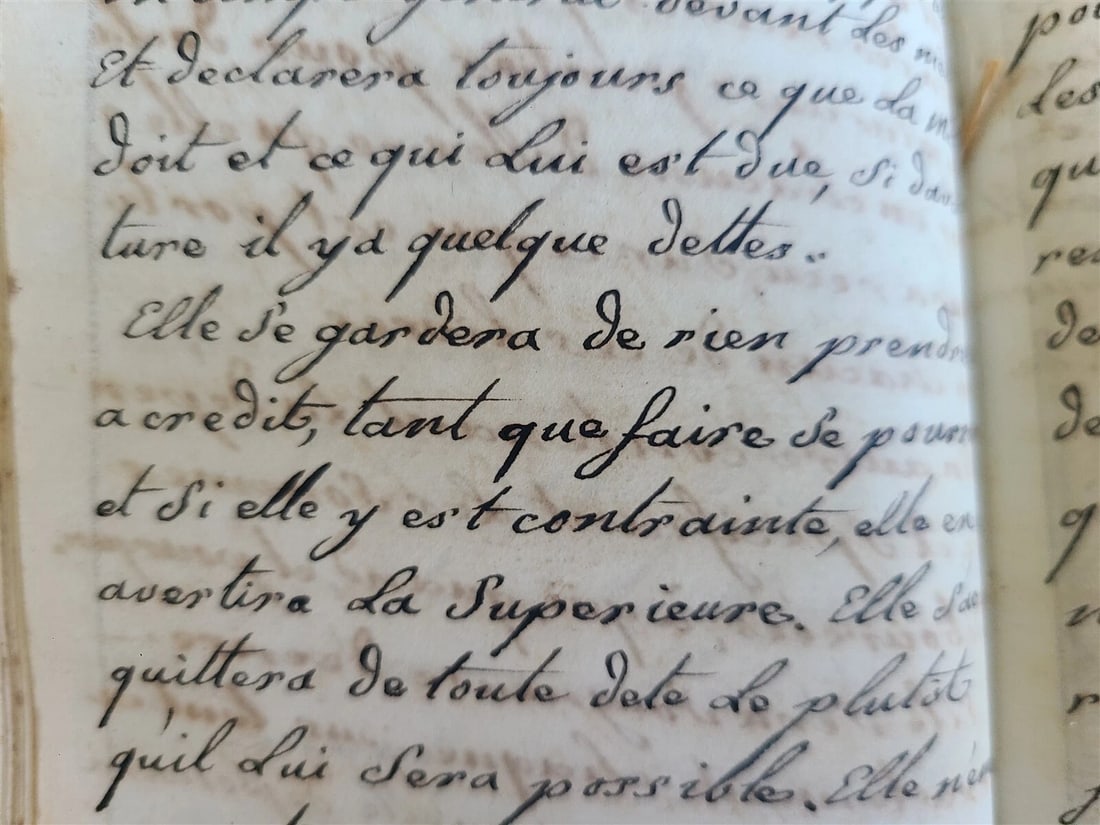 devant les
Et declarera toujours ce que la
doit et ce qui lui est due, si
ture il y a quelque dettes..
Elle se gardera de rien prendre
a credit, tant que faire se
et si elle y est contrainte, elle en
avertira la Superieure. Elle
quittera de toute dete le plutôt
qu'il lui sera possible. Elle
po
les
qu
re
de
de
q